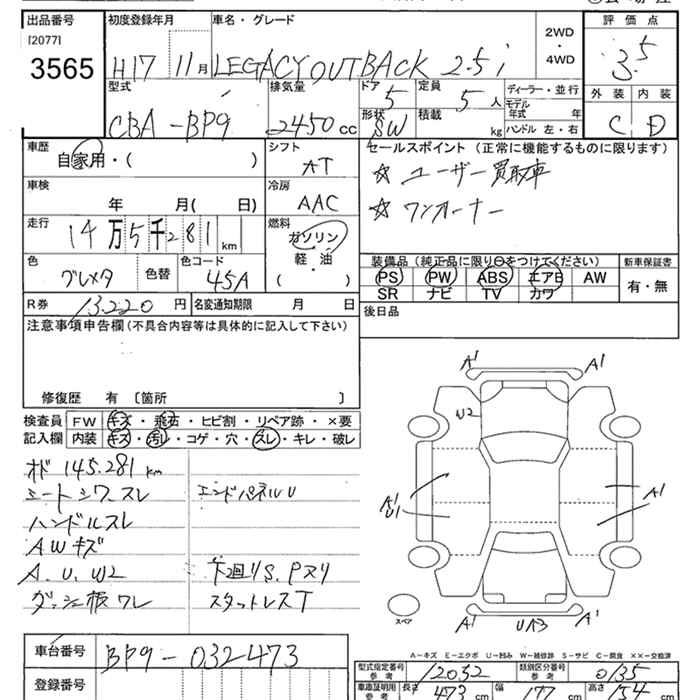 出品番号 初度登録年月 車名・グレード 2WD・4WD 評価点
[2077] 3565 H17 11月 LEGACY OUTBACK 2.5i 3.5
型式 排気量 ドア 定員 ディーラー・並行 外装 内装
CBA-BP9 2450cc 5 5人 モデル年式 年 C D
形状 積載 kg ハンドル 左・右
SW
車歴 シフト セールスポイント (正常に機能するものに限ります)
自家用・( ) AT ☆ ユーザー買取車
車検 冷房 ☆ ワンオーナー
年 月( 日) AAC
走行 燃料
14万5千281km ガソリン
軽・油
( )
色 色替 色コード 装備品 (純正品に限り○をつけてください) 新車保証書
グレメタ 45A PS PW ABS エアB AW 有・無
SR ナビ TV カワ
R券 13220円 名変通知期限 月 日 後日品
注意事項申告欄 (不具合内容等は具体的に記入して下さい)
修復歴 有 〔箇所 〕
検査員 FW キズ・飛石・ヒビ割・リペア跡・×要
記入欄 内装 キズ・汚レ・コゲ・穴・スレ・キレ・破レ
オド 145.281km
シートシワ.スレ エンドパネルU
ハンドルスレ
AWキズ
A.U.W2 下廻りS.Pヌリ
ダッシュ板ワレ スタットレスT
A1 A1
U2
A1 U1 A1
スペア A1 UA3 A1
A-キズ E-エクボ U-凹み W-補修跡 S-サビ C-腐食 ××-交換済
車台番号 BP9-032473
登録番号
型式指定番号 参考 12032 類別区分番号 参考 0135
車検証明用 参考 長さ 473cm 幅 177cm 高さ 154cm